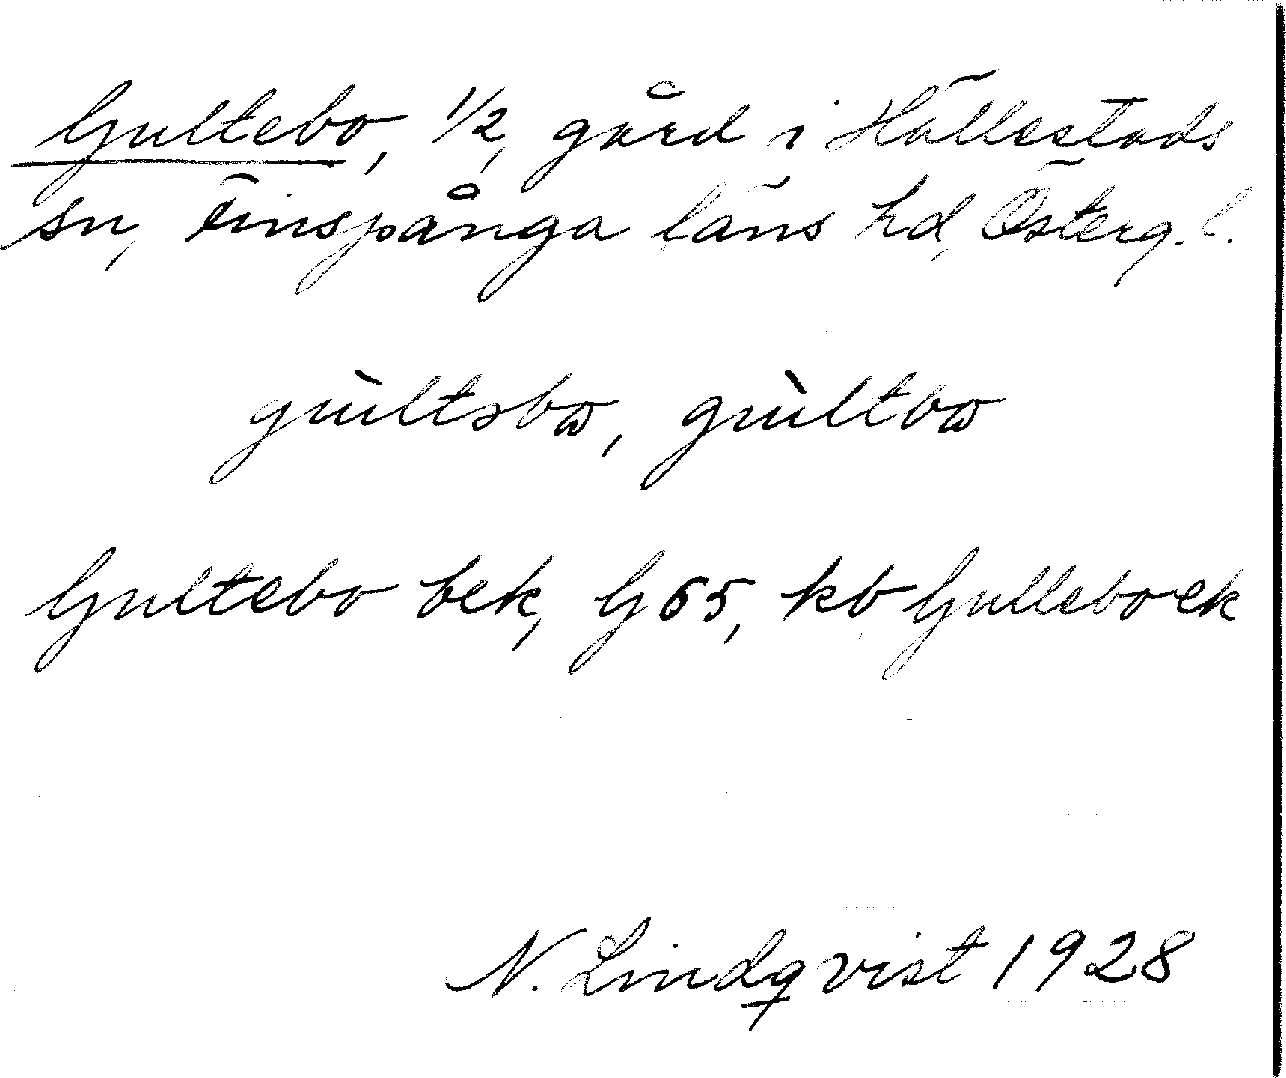 Gultebo, 1/2, gård i Hällestads
sn, Finspånga läns hd, Österg. l.
gùltsbω, gùltbω
Gultebo bek, G 65, kb Gulleboek
N. Lindqvist 1928